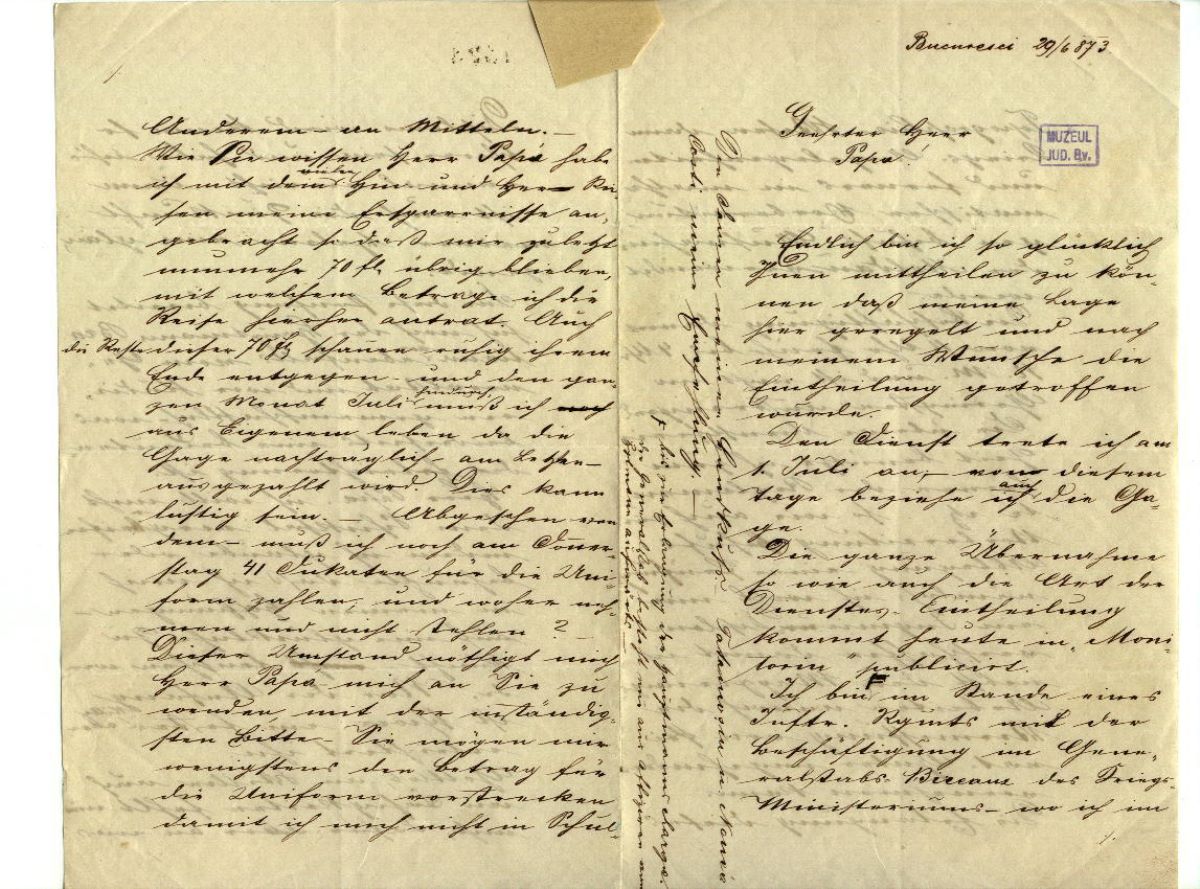 Bucuresci 29/6 873.
MUZEUL
JUD. Bv.
Geehrter Herr
Papa.
Endlich bin ich so glücklich
Ihnen mittheilen zu kön-
nen daß meine Lage
hier geregelt und nach
meinem Wunsche die
Eintheilung getroffen
wurde.
Den Dienst trete ich am
1. Juli an, – von diesem
Tage beziehe ich auch die Ga-
ge.
Die ganze Übernahme
so wie auch die Art der
Dienstes-Eintheilung
kommt heute in „Moni-
torin" publicirt.
Ich bin im Stande eines
Inftr. Rgmts mit der
Beschäftigung im Gene-
ralstabs-Bireaux des Kriegs-
Ministeriums – wo ich im
Anderem – an Mitteln. –
Wie Sie wissen Herr Papa habe
ich mit dem vielen Hin und Her Rei-
sen meine Ersparnisse an-
gebracht so daß mir zuletzt
nunmehr 70 fl. übrig blieben,
mit welchem Betrage ich die
Reise hierher antrat. Auch
die Reste dieser 70 fl. schauen ruhig ihrem
Ende entgegen – und den gan-
zen Monat Juli hindurch muß ich noch
aus Eigenem leben da die
Gage nachträglich – am Letzten –
ausgezahlt wird. Dies kann
lustig sein. – Abgesehen von
dem – muß ich noch am Donner-
stag 41 Dukaten für die Uni-
form zahlen, und woher neh-
men und nicht stehlen?
Dieser Umstand nöthigt mich
Herr Papa mich an Sie zu
wenden, mit der inständig-
sten Bitte – Sie mögen mir
wenigstens den Betrag für
die Uniform vorstrecken
damit ich mich nicht in Schul-
Den Damen meinen Handkuß.